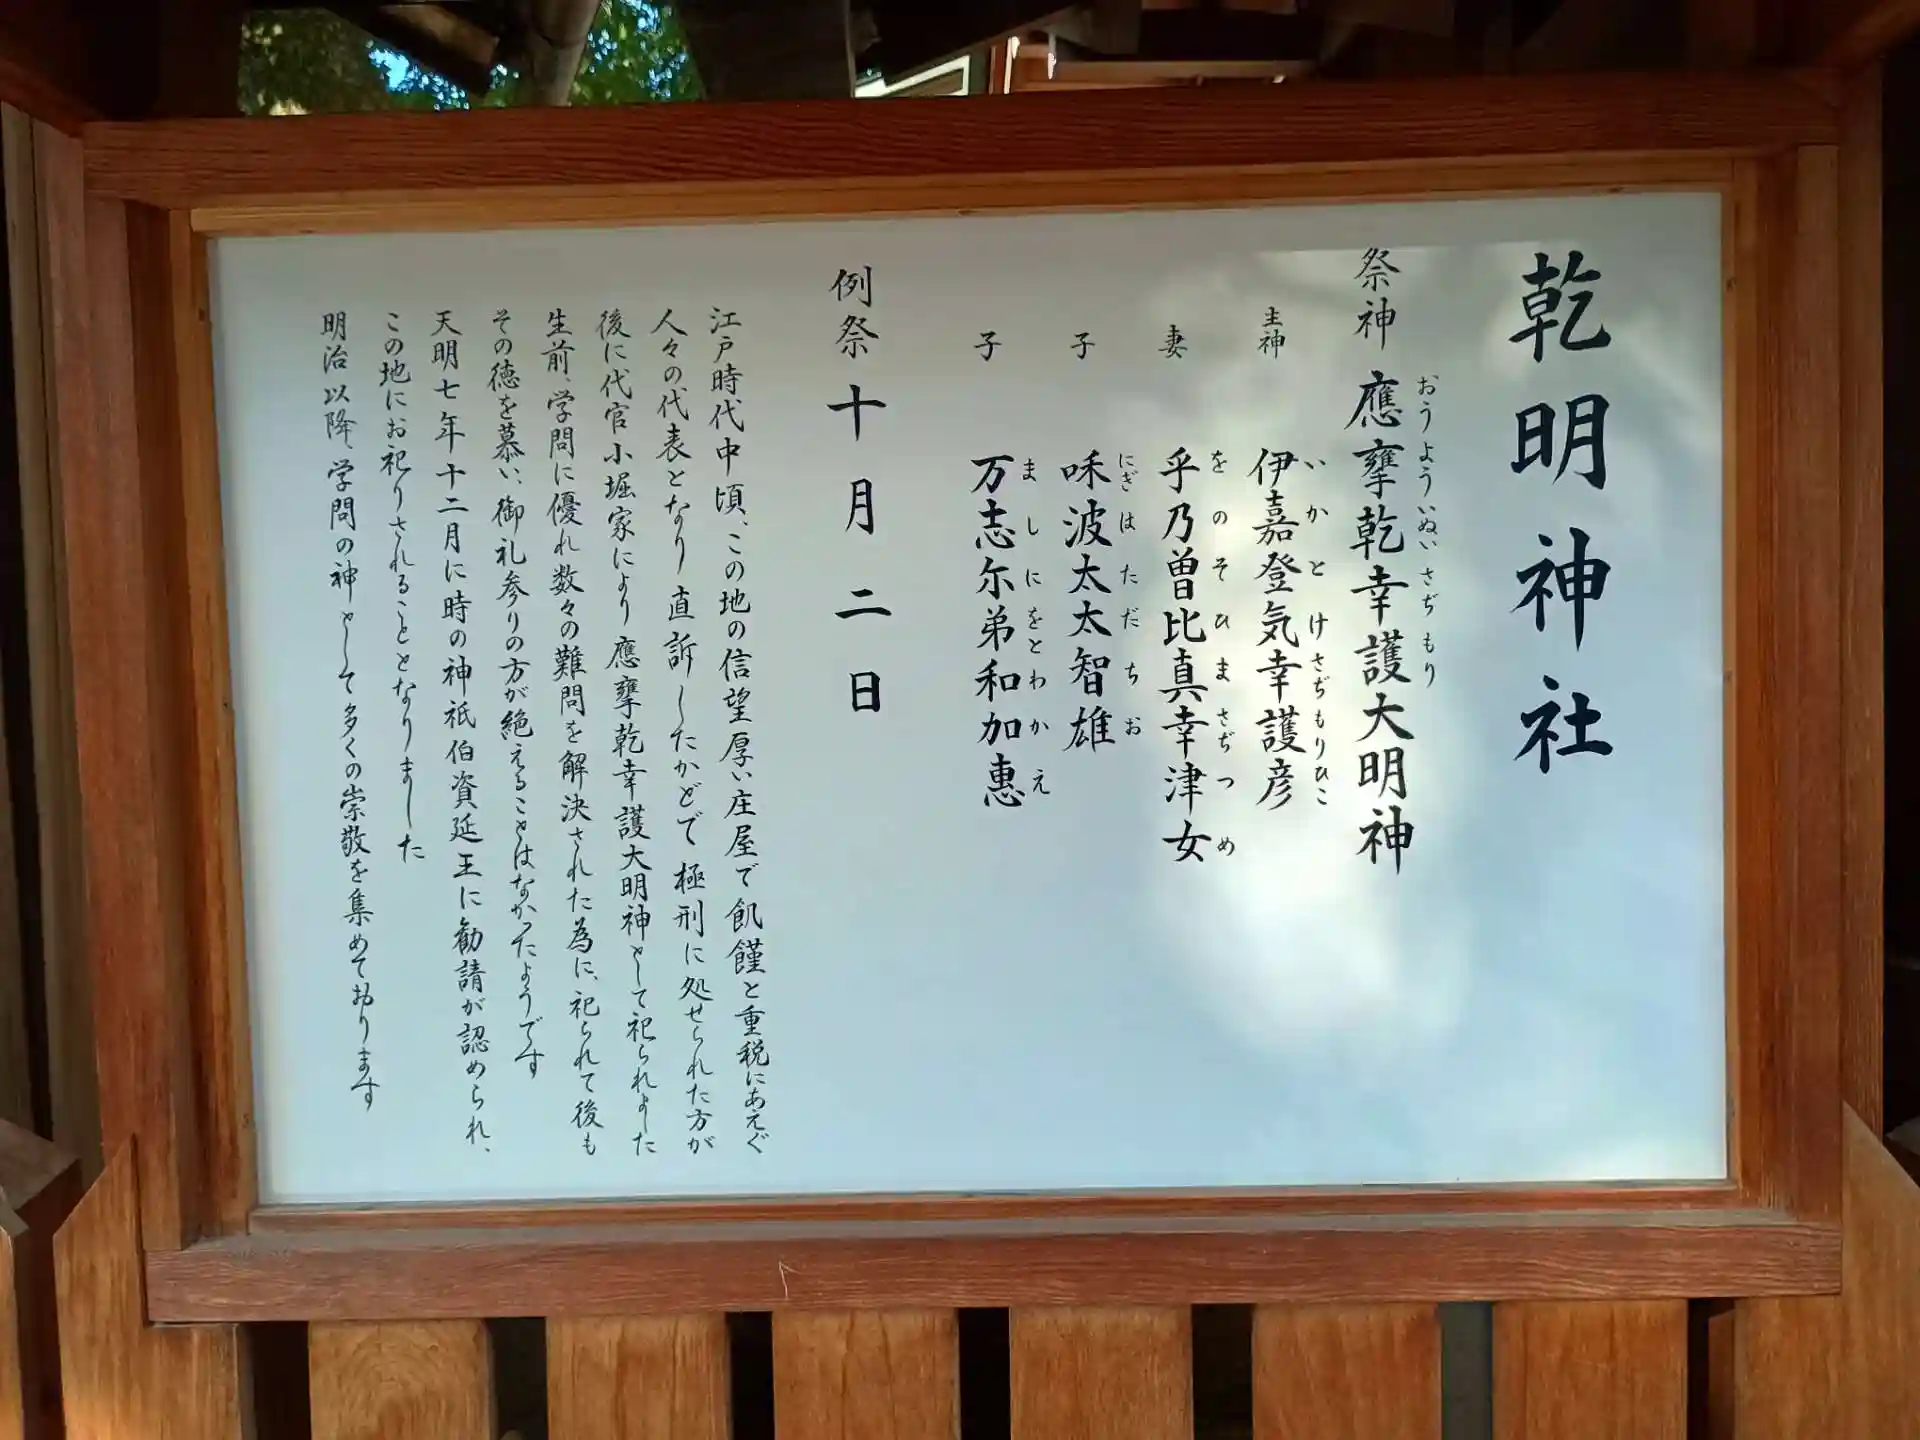 乾明神社
祭神 應擥乾幸護大明神
おうよういぬいさぢもり
主神 伊嘉登気幸護彦
いかとけさぢもりひこ
妻 乎乃曽比真幸津女
をのそひまさぢつめ
子 咊波太太智雄
にぎはただちお
子 万志尓弟和加惠
ましにをとわかえ
例祭 十月二日
江戸時代中頃、この地の信望厚い庄屋で飢饉と重税にあえぐ
人々の代表となり直訴したかどで極刑に処せられた方が
後に代官小堀家により應擥乾幸護大明神として祀られました
生前、学問に優れ数々の難問を解決された為に、祀られて後も
その徳を慕い、御礼参りの方が絶えることはなかったようです
天明七年十二月に時の神祇伯資延王に勧請が認められ、
この地にお祀りされることとなりました
明治以降、学問の神として多くの崇敬を集めております